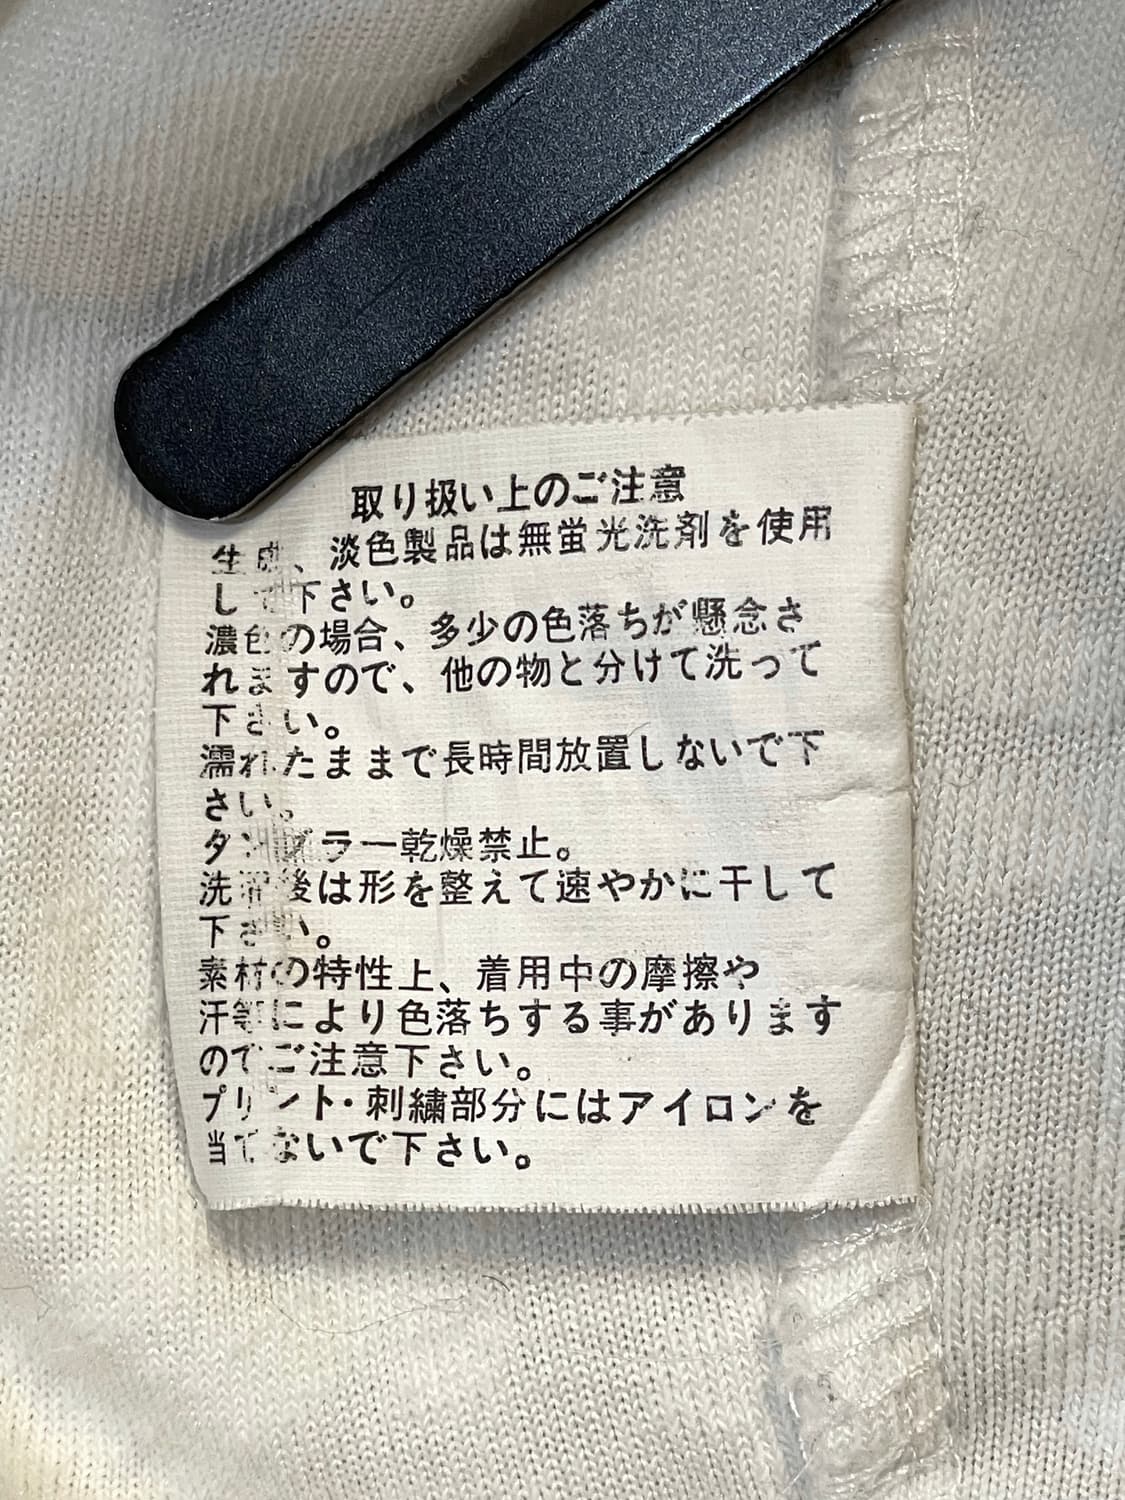 取り扱い上のご注意
生成、淡色製品は無蛍光洗剤を使用
して下さい。
濃色の場合、多少の色落ちが懸念さ
れますので、他の物と分けて洗って
下さい。
濡れたままで長時間放置しないで下
さい。
タンブラー乾燥禁止。
洗濯後は形を整えて速やかに干して
下さい。
素材の特性上、着用中の摩擦や
汗等により色落ちする事があります
のでご注意下さい。
プリント・刺繍部分にはアイロンを
当てないで下さい。